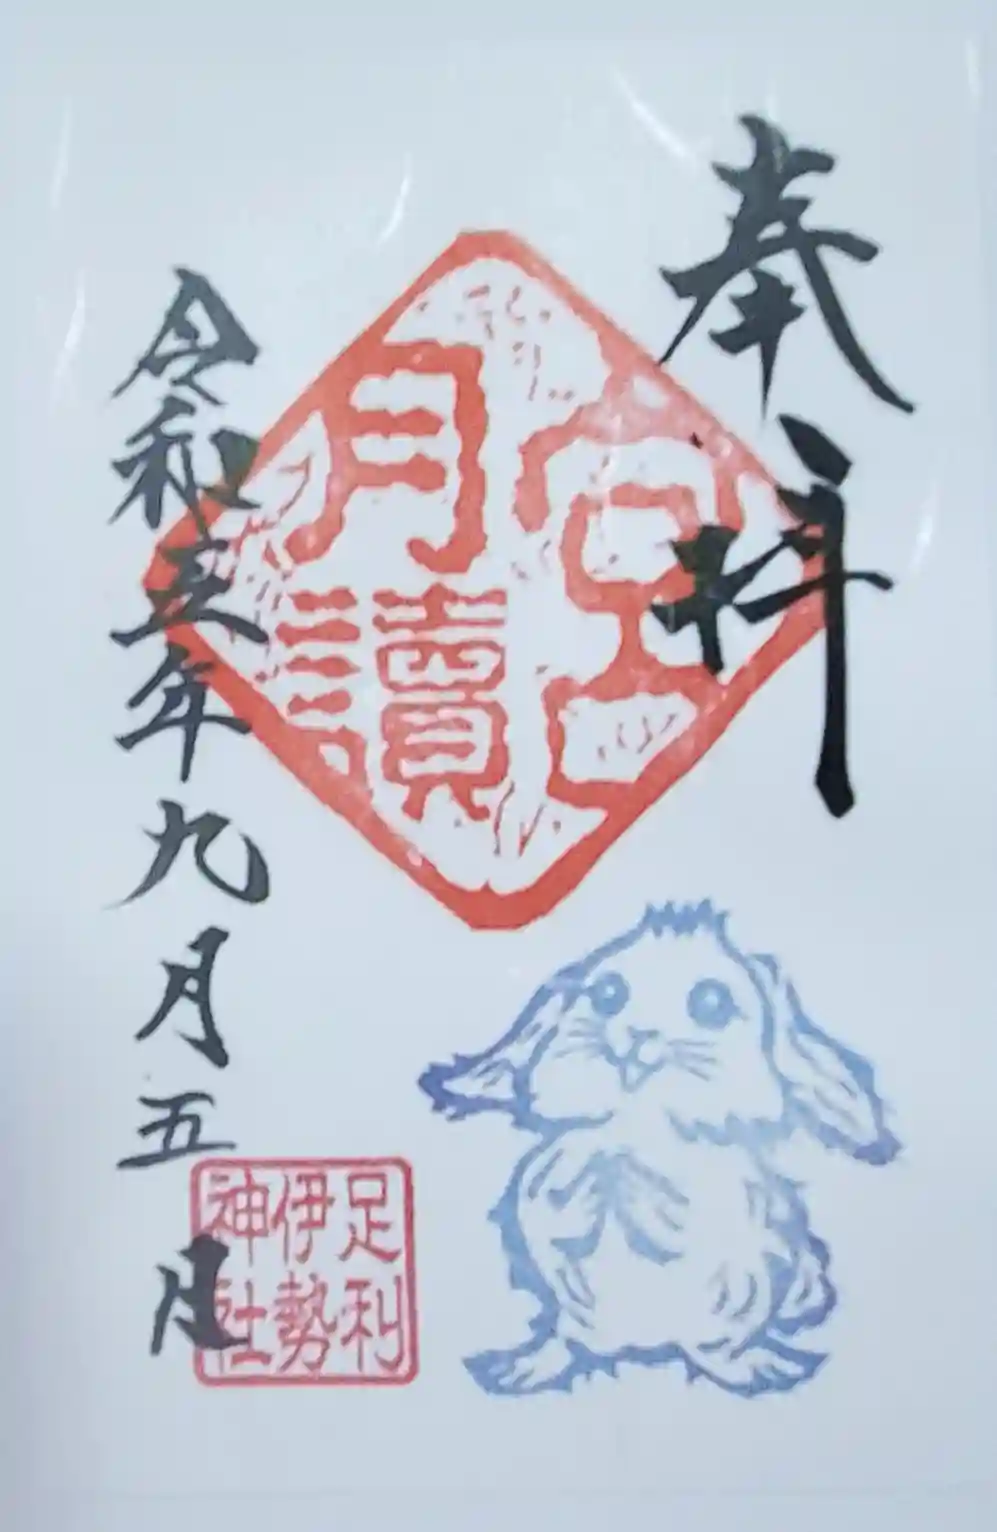 奉拝
月讀
宮
令和五年九月五日
足利
伊勢
神社